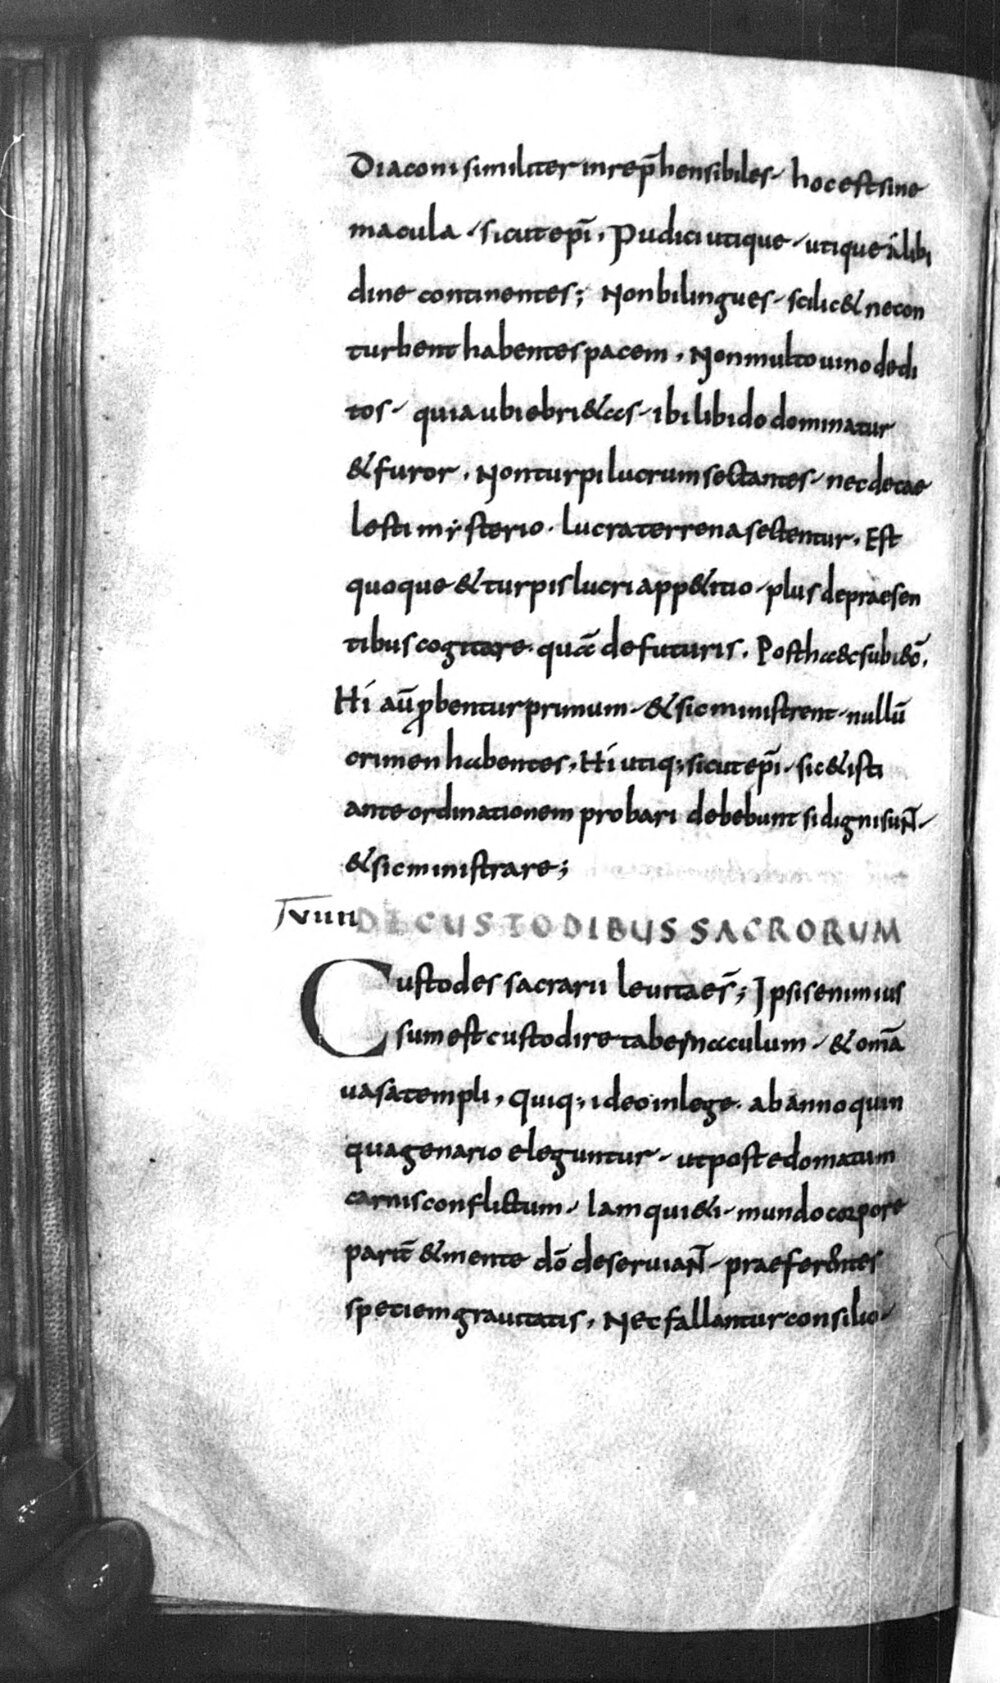 Diaconi similiter inrep̄hensibiles, hoc est sine
macula, sicut ep̄i. Pudici utique, utique a libi
dine continentes; Non bilingues, scilic& ne con
turbent habentes pacem. Non multo uino dedi
tos, quia ubi ebri&as, ibi libido dominatur
& furor. Non turpi lucrum sectantes, nec de cae
lesti mẏsterio, lucra terrena sectentur. Est
quoque & turpis lucri app&itio, plus de praesen
tibus cogitare, quā de futuris. Post haec subi&̄,
Hi aū p̄bentur primum, & sic ministrent, nullū
crimen habentes. Hi utiq; sicut ep̄i, sic & isti
ante ordinationem probari debebunt si digni suN̄,
& sic ministrare;
VIIII DE CUSTODIBUS SACRORUM
Custodes sacrarii leuitae s̄; Ipsis enim ius
sum est custodire tabernaculum, & om̄a
uasa templi, quiq; ideo in lege, ab anno quin
quagenario eleguntur, ut post edomatum
carnis conflictum, iam qui&i, mundo corpore
parit̄ & mente dō deseruiaN̄, praeferentes
spetiem grauitatis. Nec fallantur consilio,